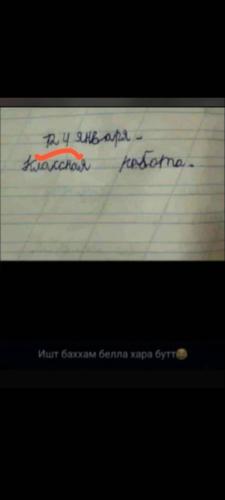 24 января.
Классная работа.
Ишт баххам белла хара бутт😂